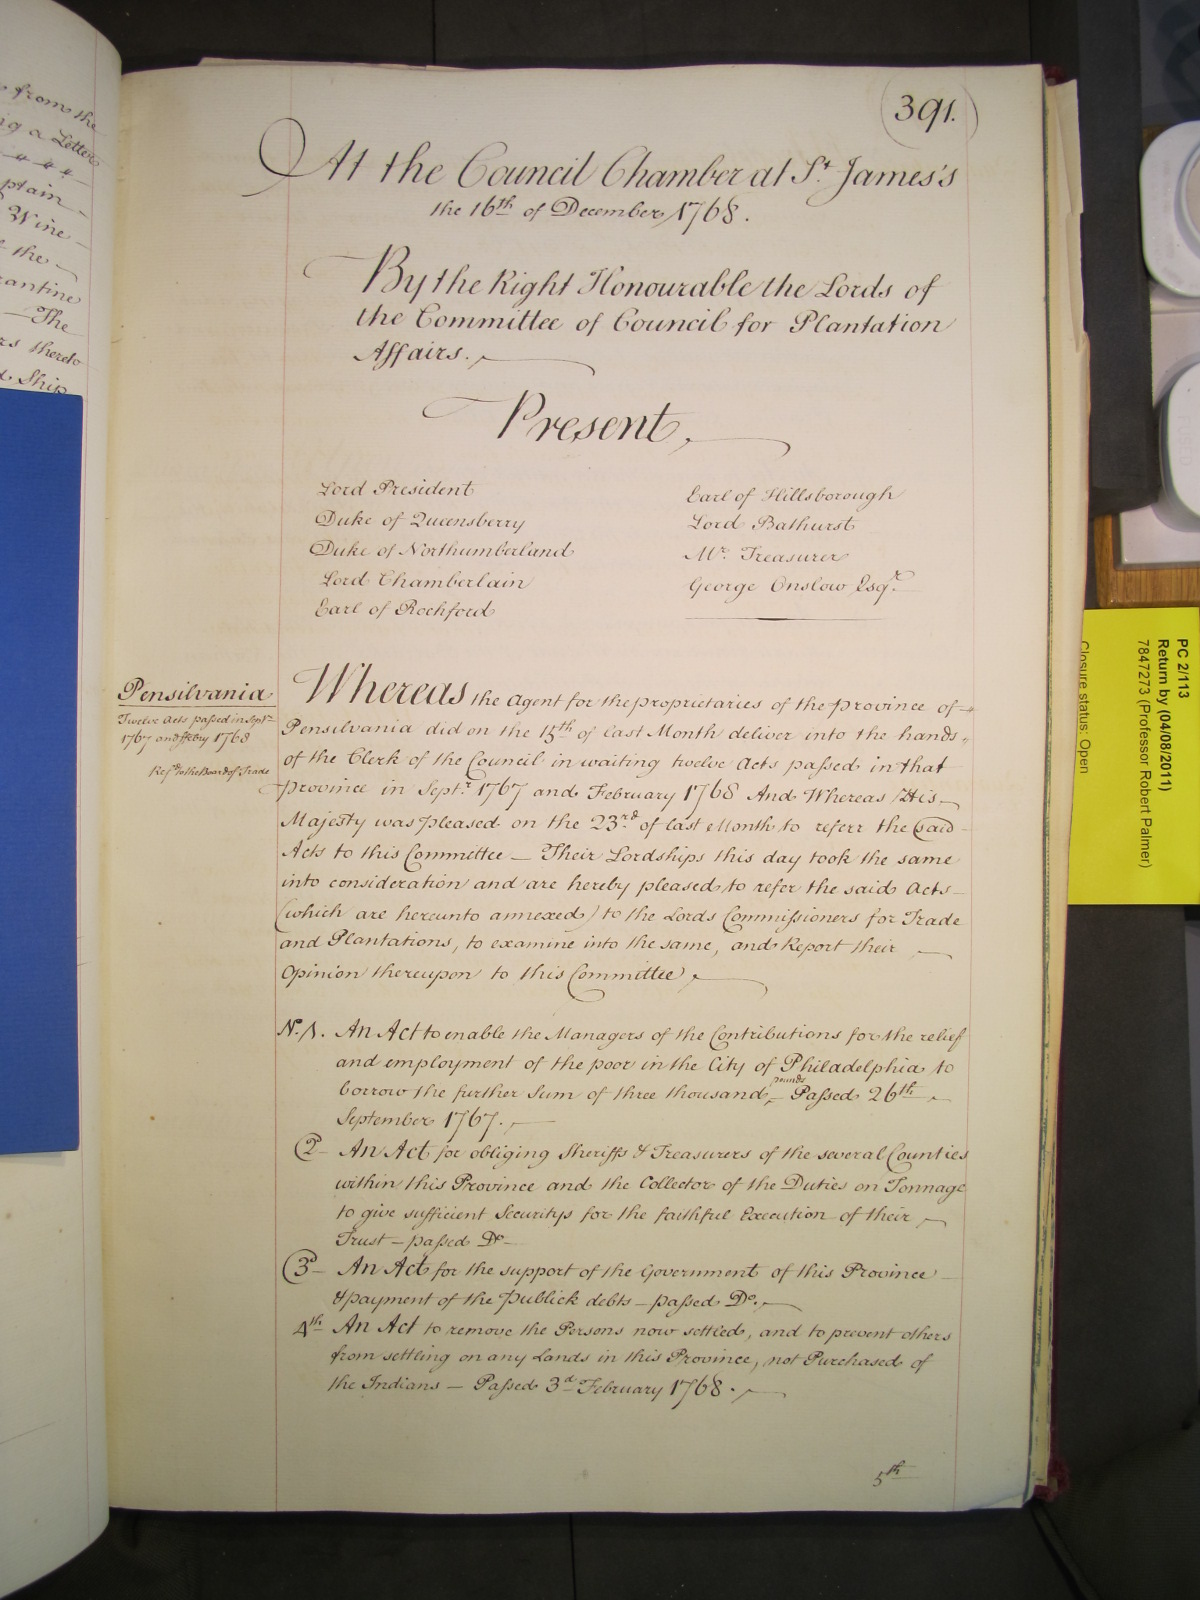 from the
ng a Letter
ptain
Wine
the
rantine
The
rs thereto
Ship
391.
At the Council Chamber at St. James's
the 16th of December 1768.
By the Right Honourable the Lords of
the Committee of Council for Plantation
Affairs.
Present,
Lord President
Duke of Queensberry
Duke of Northumberland
Lord Chamberlain
Earl of Rochford
Earl of Hillsborough
Lord Bathurst
Mr. Treasurer
George Onslow Esqr.
Pensilvania
Twelve Acts passed in Septr.
1767 and Feby 1768
Refd. to the Board of Trade
Whereas the Agent for the proprietaries of the province of
Pensilvania did on the 15th of last Month deliver into the hands
of the Clerk of the Council in waiting twelve Acts passed in that
province in Septr. 1767 and February 1768 And Whereas His
Majesty was pleased on the 23rd of last Month to referr the said
Acts to this Committee — Their Lordships this day took the same
into consideration and are hereby pleased to refer the said Acts
(which are hereunto annexed) to the Lords Commissioners for Trade
and Plantations, to examine into the same, and Report their
Opinion thereupon to this Committee,
N. 1. An Act to enable the Managers of the Contributions for the relief
and employment of the poor in the City of Philadelphia to
borrow the further Sum of three thousand pounds — Passed 26th
September 1767.
2 — An Act for obliging Sheriffs & Treasurers of the several Counties
within this Province and the Collector of the Duties on Tonnage
to give sufficient Securitys for the faithful Execution of their
Trust — passed Do.
3d — An Act for the support of the Government of this Province
& payment of the publick debts — passed Do.
4th An Act to remove the Persons now settled, and to prevent others
from settling on any Lands in this Province, not Purchased of
the Indians — Passed 3d February 1768.
5th
PC 2/113
Return by (04/08/2011)
7847273 (Professor Robert Palmer)
Closure status: Open